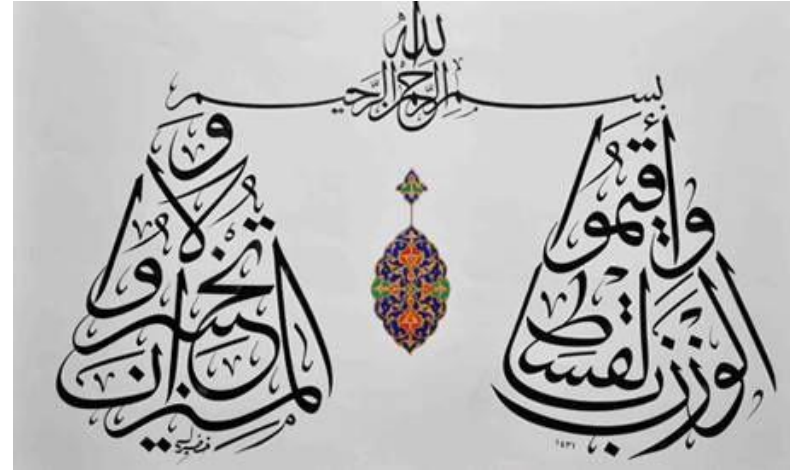 بسم الله الرحمن الرحيم
وأقيموا
الوزن بالقسط
و
لا تخسروا
الميزان
١٤٣١